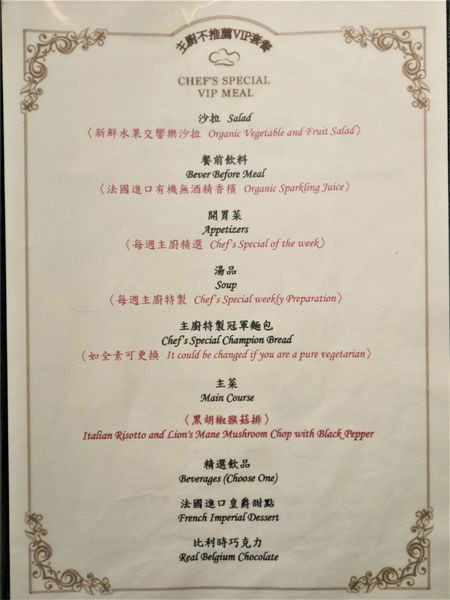 主廚不推薦VIP套餐
CHEF'S SPECIAL
VIP MEAL
沙拉 Salad
〈新鮮水果交響樂沙拉 Organic Vegetable and Fruit Salad〉
餐前飲料
Bever Before Meal
〈法國進口有機無酒精香檳 Organic Sparkling Juice〉
開胃菜
Appetizers
〈每週主廚精選 Chef's Special of the week〉
湯品
Soup
〈每週主廚特製 Chef's Special weekly Preparation〉
主廚特製冠軍麵包
Chef's Special Champion Bread
〈如全素可更換 It could be changed if you are a pure vegetarian〉
主菜
Main Course
〈黑胡椒猴菇排〉
Italian Risotto and Lion's Mane Mushroom Chop with Black Pepper
精選飲品
Beverages (Choose One)
法國進口皇爵甜點
French Imperial Dessert
比利時巧克力
Real Belgium Chocolate